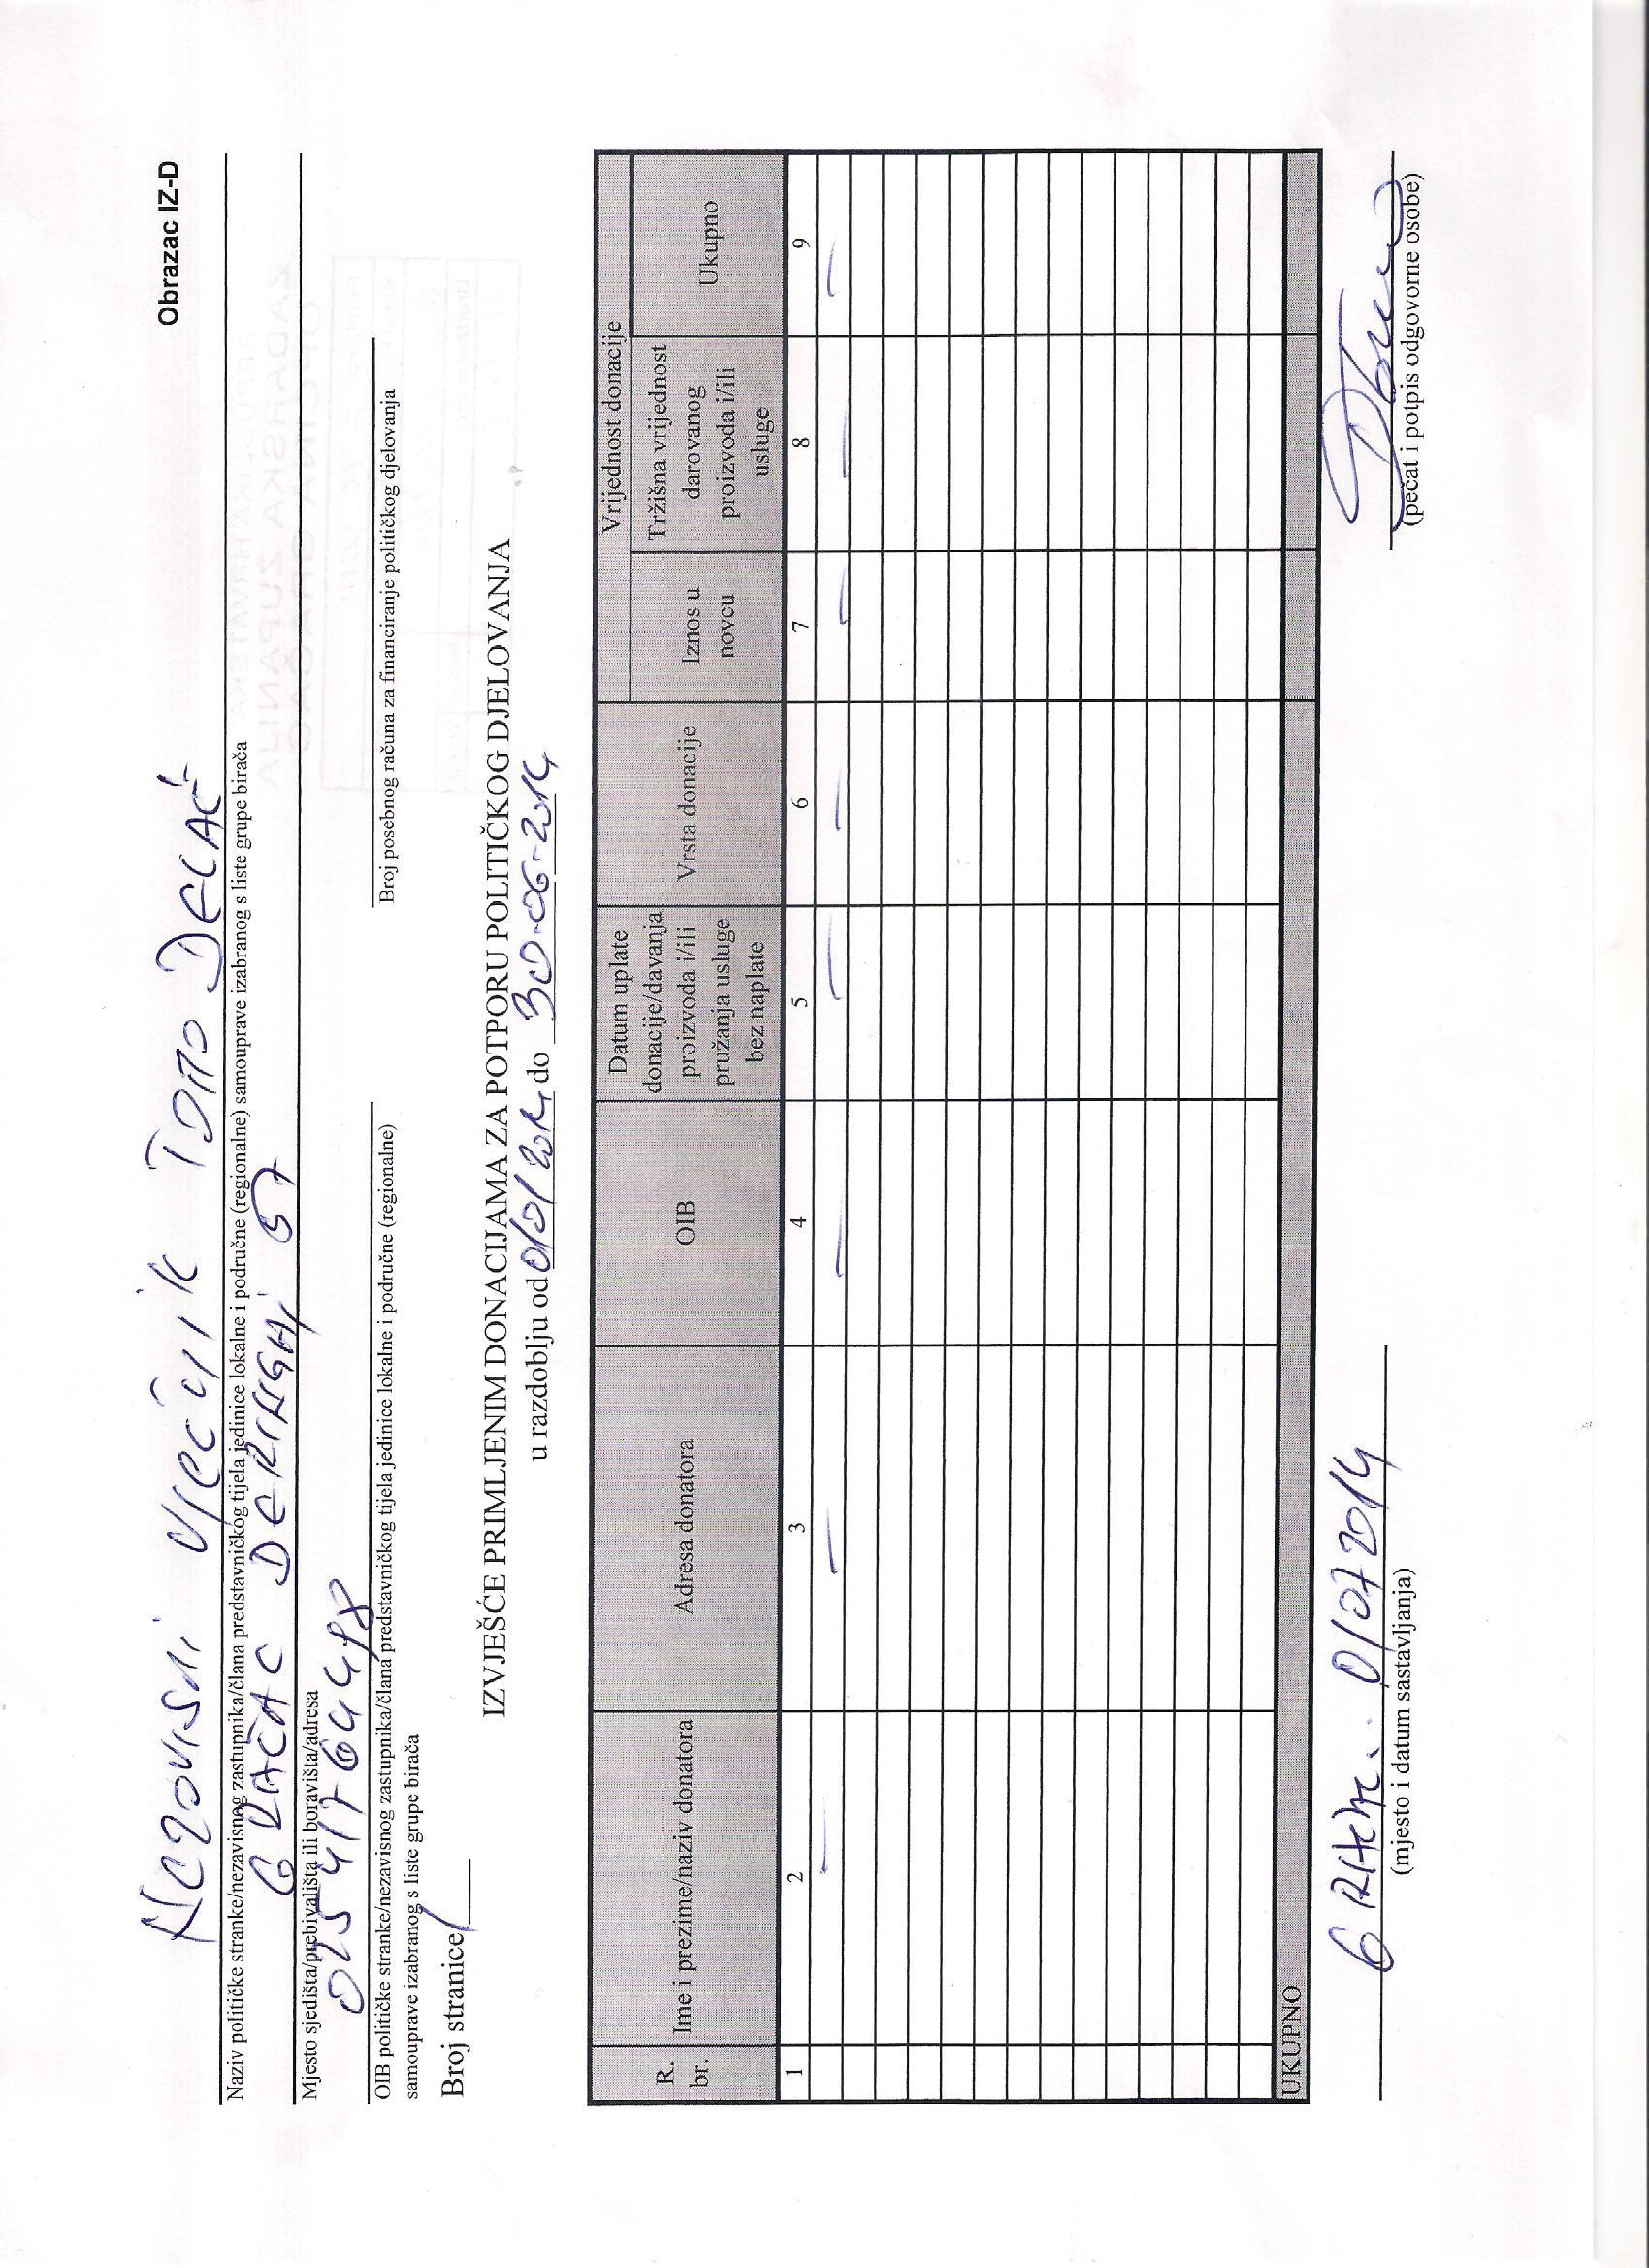 Obrazac IZ-D
Nezavisni vječnik Tomo DELAČ
Naziv političke stranke/nezavisnog zastupnika/člana predstavničkog tijela jedinice lokalne i područne (regionalne) samouprave izabranog s liste grupe birača
GRAČAC DERINGAJ 57
Mjesto sjedišta/prebivališta ili boravišta/adresa
OIB političke stranke/nezavisnog zastupnika/člana predstavničkog tijela jedinice lokalne i područne (regionalne)
samouprave izabranog s liste grupe birača
Broj posebnog računa za financiranje političkog djelovanja
Broj stranice
IZVJEŠĆE PRIMLJENIM DONACIJAMA ZA POTPORU POLITIČKOG DJELOVANJA
u razdoblju od 01012014 do 30-06-2014
R. br.
Ime i prezime/naziv donatora
Adresa donatora
OIB
Datum uplate donacije/davanja proizvoda i/ili pružanja usluge bez naplate
Vrsta donacije
Vrijednost donacije
Iznos u novcu
Tržišna vrijednost darovanog proizvoda i/ili usluge
Ukupno
1 2 3 4 5 6 7 8 9
— — — — — — — —
UKUPNO
01072014
(mjesto i datum sastavljanja)
(pečat i potpis odgovorne osobe)